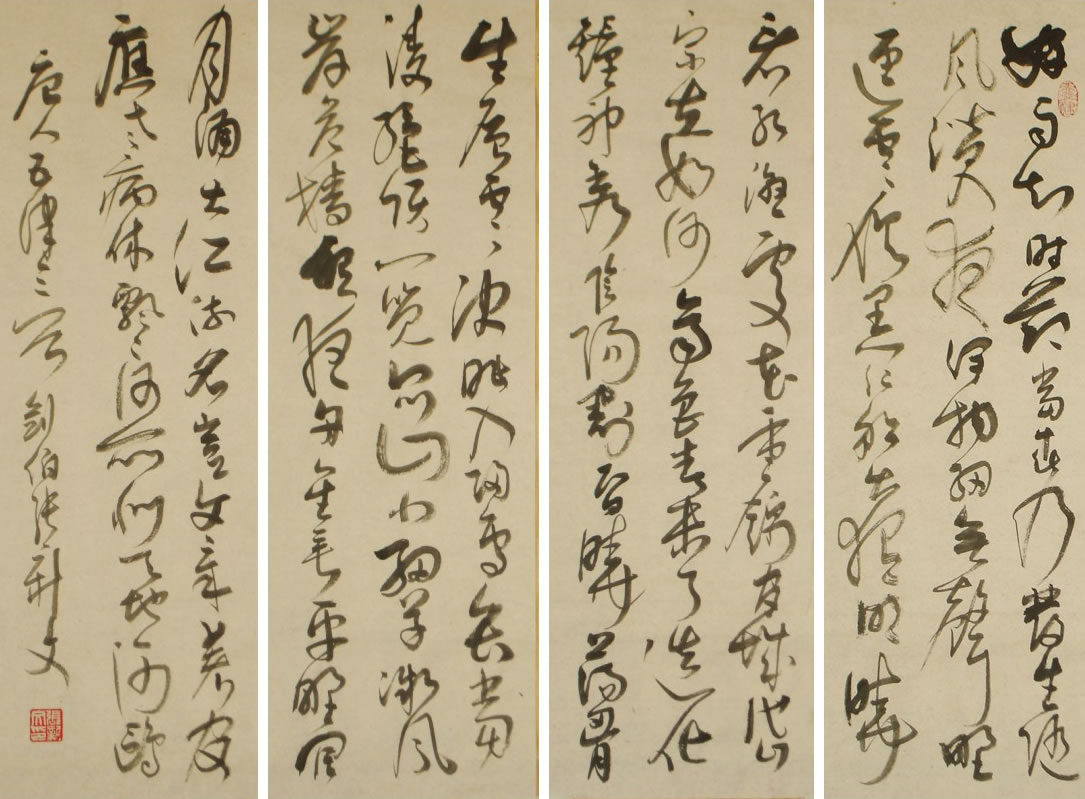 好雨知時節當春乃發生隨
風潛入夜潤物細無聲野
逕雲俱黑江船火獨明曉
看紅濕處花重錦官城岱
宗夫如何齊魯青未了造化
鍾神秀陰陽割昏曉蕩胸
生層雲決眥入歸鳥會當
凌絕頂一覽眾山小細草微風
岸危檣獨夜舟星垂平野闊
月涌大江流名豈文章著官
應老病休飄飄何所似天地沙鷗
唐人五律三首 劍伯張新文